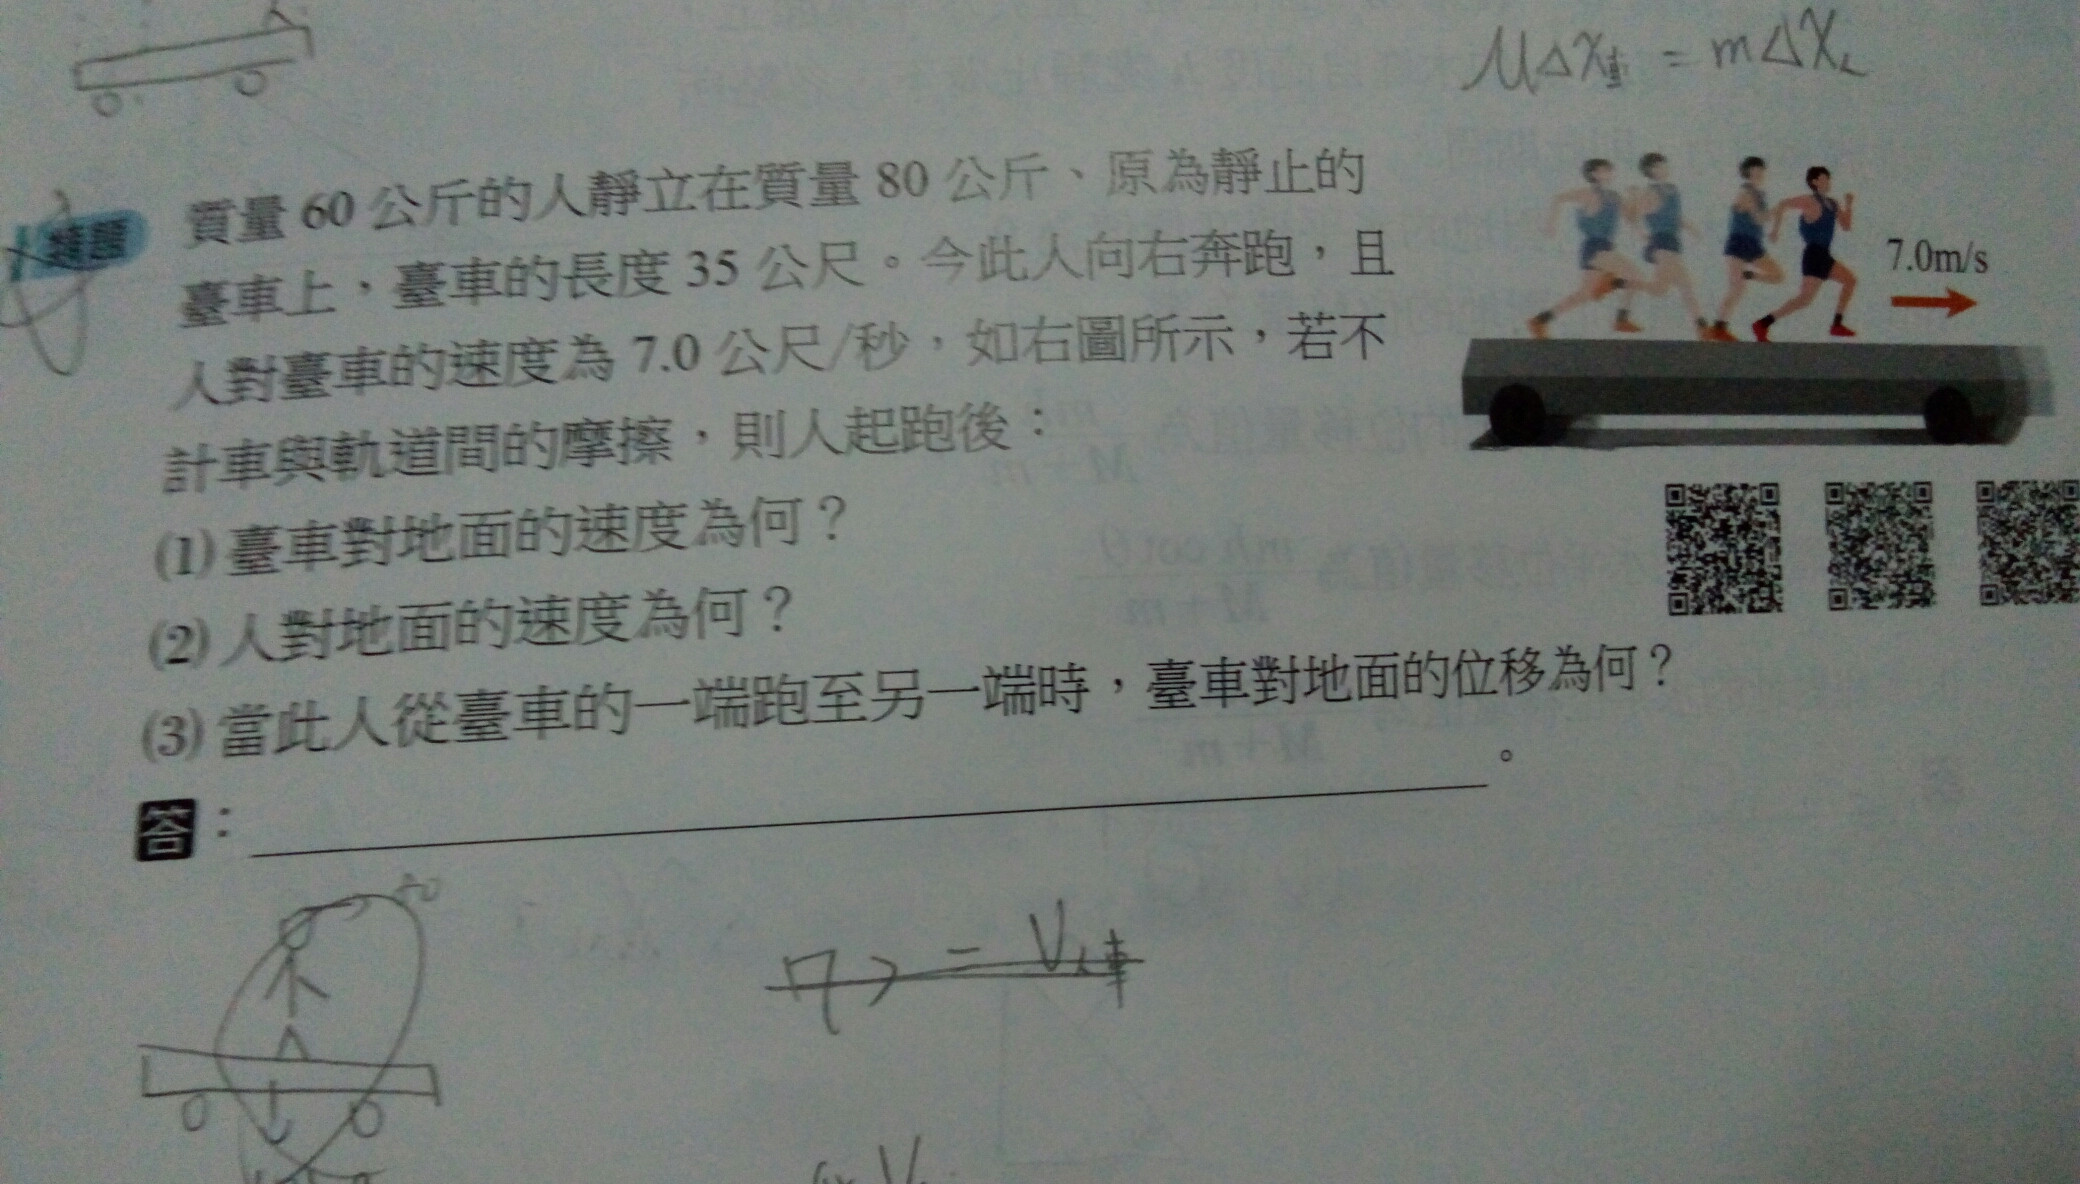 MΔX車 = mΔX人
類題
質量 60 公斤的人靜立在質量 80 公斤、原為靜止的
臺車上，臺車的長度 35 公尺。今此人向右奔跑，且
人對臺車的速度為 7.0 公尺/秒，如右圖所示，若不
計車與軌道間的摩擦，則人起跑後：
7.0m/s
(1) 臺車對地面的速度為何？
(2) 人對地面的速度為何？
(3) 當此人從臺車的一端跑至另一端時，臺車對地面的位移為何？
答：。
= V人車